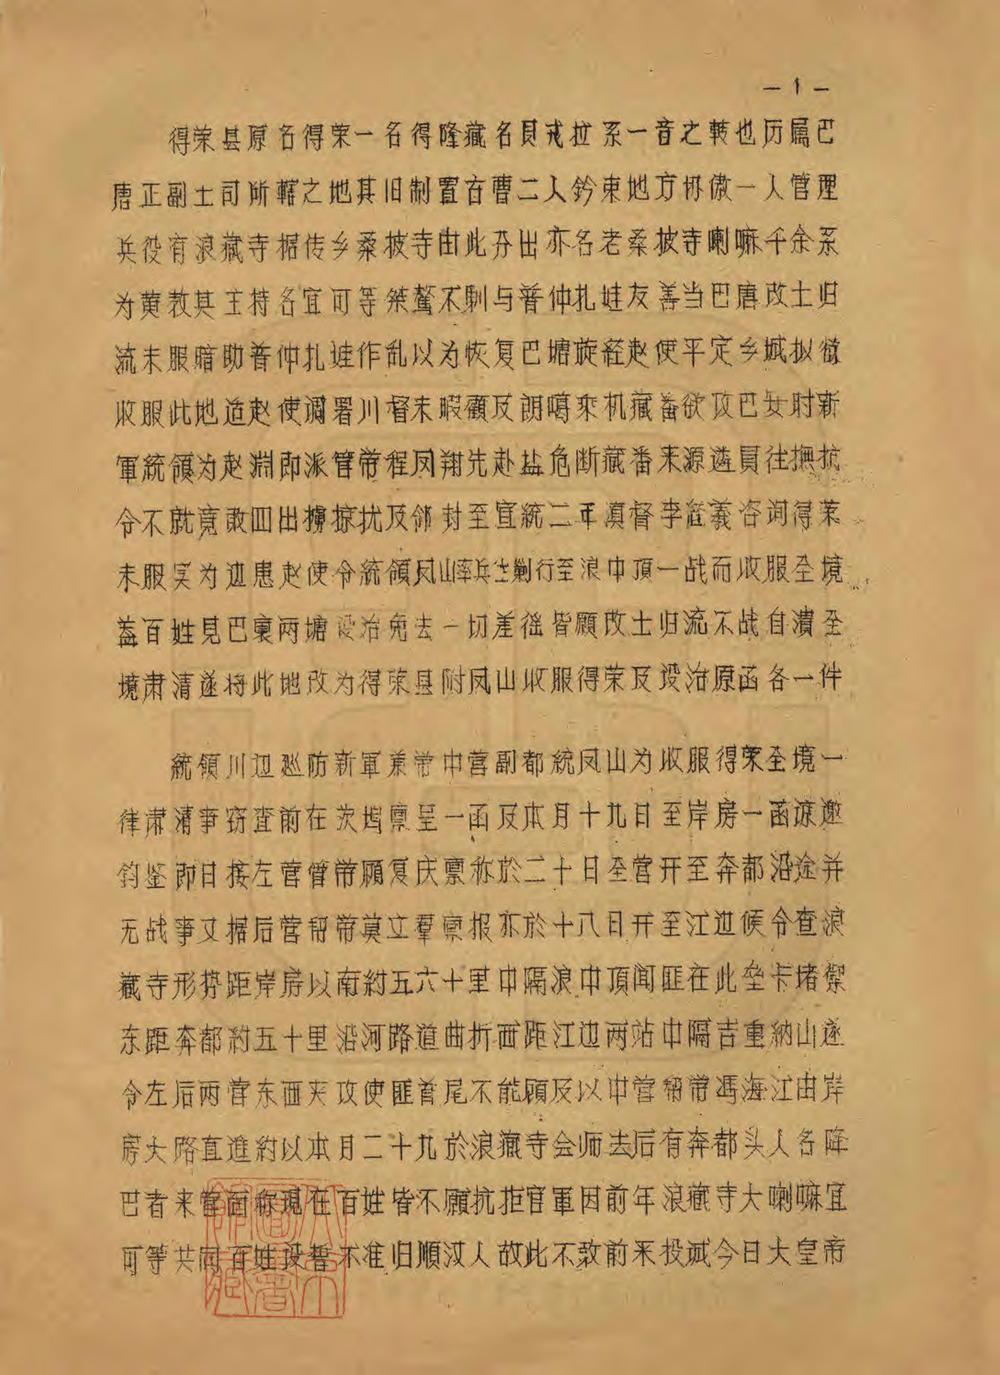 —1—
得荣县原名得荣一名得隆藏名貝戎拉系一音之转也历属巴
唐正副土司所辖之地其旧制置古曹二人钤束地方协傲一人管理
兵役有浪藏寺据传乡桑披寺由此分出亦名老桑披寺喇嘛千余系
为黄教其主持名宜可等桀骜不馴与普仲扎娃友善当巴唐改土归
流未服暗助普仲扎娃作乱以为恢复巴塘旋経赵使平定乡城拟徵
收服此地适赵使调署川督未暇顧及朗噶乘机藏番欲攻巴安时新
軍統領为赵渊即派管带程凤翔先赴盐危断藏番来源遴員往撫抗
令不就竟敢四出擄掠扰及邻封至宣統二年滇督李経義咨询得荣
未服实为边患赵使令統領凤山率兵士剿行至浪中頂一战而收服全境
盖百姓見巴裏两塘设治免去一切差徭皆願改土归流不战自潰全
境肃清遂将此地改为得荣县附凤山收服得荣及设治原函各一件
統領川边巡防新軍兼带中营副都統凤山为收服得荣全境一
律肃清事窃查前在茨塢禀呈一函及本月十九日至岸房一函諒邀
钧鉴即日接左营管带顧复庆禀称於二十日全营开至奔都沿途并
无战事又据后营帮带莫立羣禀报亦於十八日开至江边候令查浪
藏寺形势距岸房以南約五六十里中隔浪中頂闻匪在此垒卡堵禦
东距奔都約五十里沿河路道曲折西距江边两站中隔吉重納山遂
令左后两营东西夹攻使匪首尾不能顧及以中营帮带馮海江由岸
房大路直進約以本月二十九於浪藏寺会师去后有奔都头人名降
巴者来營面称現在百姓皆不願抗拒官軍因前年浪藏寺大喇嘛宜
可等共同百姓设誓不准归順汉人故此不敢前来投誠今日大皇帝